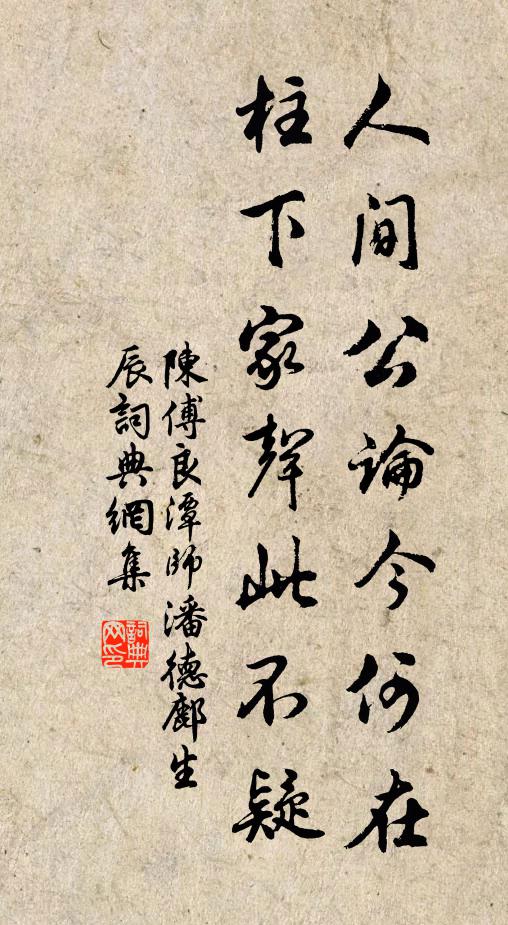 人間公論今何在
柱下家聲此不疑
陳傅良潭師潘德鄜生
辰詞典網集
詞典網印